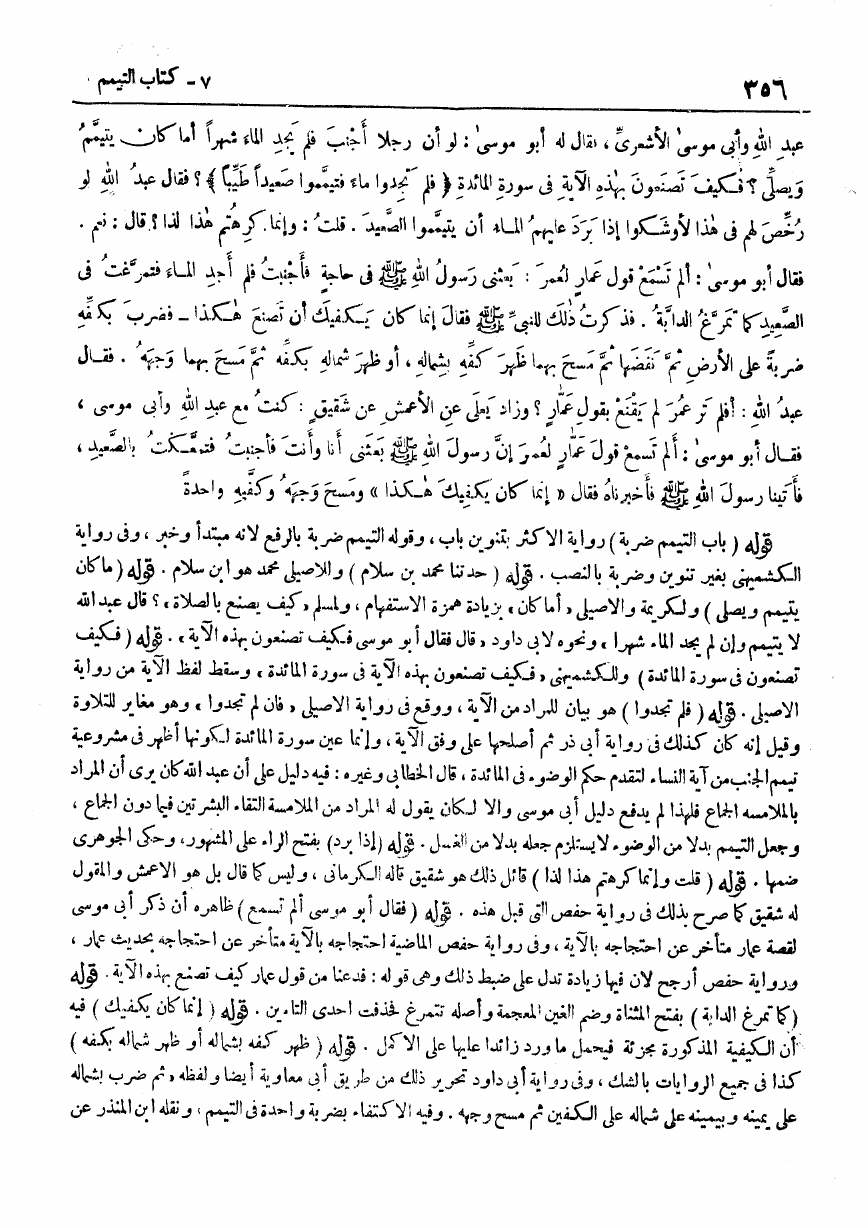 ٣٥٦
٧ - كتاب التيمم
عبدِ اللهِ وأبى موسىٰ الأشعرىِّ ، فقال له أبو موسىٰ : لو أن رجلا أَجْنَبَ فلم يَجِدِ الماءَ شهراً أما كان يتيمَّمُ
وَيصلِّى ؟ فـكيفَ تَصنَعونَ بهٰذِهِ الآيةِ فى سورةِ المائدةِ ﴿ فلم تَجِدوا ماءً فتيمَّموا صَعيداً طَيِّباً ﴾ ؟ فقال عبدُ اللهِ لو
رُخِّصَ لهم فى هٰذا لأوشَـكوا إذا بَرَدَ عليهمُ المـاءُ أن يتيمَّموا الصَّعيدَ . قلتُ : وإنما كرِهتُم هٰذا لذا ؟ قال : نعم .
فقال أبو موسىٰ : ألم تَسْمَعْ قول عمارٍ لعُمرَ : بَعثنى رَسولُ اللهِ ﷺ فى حاجةٍ فأجْنَبتُ فلم أجدِ المـاءَ فتمرَّغتُ فى
الصَّعيدِ كما تَمرَّغُ الدابَّةُ . فذكرتُ ذٰلكَ للنبىِّ ﷺ فقالَ إنما كان يَـكفيكَ أن تَصنعَ هٰـكذا ـ فضربَ بكفِّهِ
ضربةً على الأرضِ ثمَّ نَفَضَها ثمَّ مَسحَ بهما ظَهرَ كفِّهِ بشِمالهِ ، أو ظهرَ شمالهِ بكفِّه ثمَّ مَسحَ بهما وَجهَهُ . فقـال
عبدُ اللهِ : أفلم تَرَ عمُرَ لم يَقْنَعْ بقولِ عمَّارٍ ؟ وزاد يَعلَى عنِ الأعمشِ عن شَقيقٍ : كنتُ مع عبدِ اللهِ وأبى موسى ،
فقـال أبو موسىٰ : ألم تَسمعْ قولَ عمَّارٍ لعُمرَ إنَّ رسولَ اللهِ ﷺ بَعثَنى أنا وأنتَ فأجنبتُ فتمعَّـكتُ بالصَّعيدِ ،
فأتَينا رسولَ اللهِ ﷺ فأخبرناهُ فقال « إنما كان يكفِيكَ هٰـكذا » ومَسحَ وَجهَهُ وكفَّيهِ واحدةً
قوله ( باب التيمم ضربة ) رواية الاكثر بتنوين باب ، وقوله التيمم ضربة بالرفع لانه مبتدأ وخبر ، وفى رواية
الـكشميهنى بغير تنوين وضربة بالنصب . قوله ( حدثنا محمد بن سلام ) وللاصيلى محمد هو ابن سلام . قوله ( ما كان
يتيمم ويصلى ) ولـكريمة والاصيلى « أما كان » بزيادة همزة الاستفهام ، ولمسلم « كيف يصنع بالصلاة » ؟ قال عبد الله
لا يتيمم وإن لم يجد الماء شهرا » ونحوه لابى داود « قال فقال أبو موسى فـكيف تصنعون بهذه الآية » . قوله ( فـكيف
تصنعون فى سورة المائدة ) وللـكشميهنى « فـكيف تصنعون بهذه الآية فى سورة المائدة » وسقط لفظ الآية من رواية
الاصيلى . قوله ( فلم تجدوا ) هو بيان للمراد من الآية ، ووقع فى رواية الاصيلى « فان لم تجدوا » وهو مغاير للتلاوة
وقيل إنه كان كذلك فى رواية أبى ذر ثم أصلحها على وفق الآية ، وإنما عين سورة المائدة لـكونها أظهر فى مشروعية
تيمم الجنب من آية النساء لتقدم حكم الوضوء فى المائدة ، قال الخطابى وغيره : فيه دليل على أن عبد الله كان يرى أن المراد
بالملامسه الجماع فلهذا لم يدفع دليل أبى موسى والا لـكان يقول له المراد من الملامسة التقاء البشرتين فيما دون الجماع ،
وجعل التيمم بدلا من الوضوء لا يستلزم جعله بدلا من الغسل . قوله ( إذا برد ) بفتح الراء على المشهور ، وحكى الجوهرى
ضمها . قوله ( قلت وإنما كرهتم هذا لذا ) قائل ذلك هو شقيق قاله الـكرمانى ، وليس كما قال بل هو الاعمش والمقول
له شقيق كما صرح بذلك فى رواية حفص التى قبل هذه . قوله ( فقال أبو موسى ألم تسمع ) ظاهره أن ذكر أبى موسى
لقصة عمار متأخر عن احتجاجه بالآية ، وفى رواية حفص الماضية احتجاجه بالآية متأخر عن احتجاجه بحديث عمار ،
ورواية حفص أرجح لان فيها زيادة تدل على ضبط ذلك وهى قوله : فدعنا من قول عمار كيف تصنع بهذه الآية . قوله
( كما تمرغ الدابة ) بفتح المثناة وضم الغين المعجمة وأصله تتمرغ فحذفت احدى التاءين . قوله ( إنما كان يكفيك ) فيه
أن الـكيفية المذكورة مجزئة فيحمل ما ورد زائدا عليها على الاكمل . قوله ( ظهر كفه بشماله أو ظهر شماله بكفه )
كذا فى جميع الروايات بالشك ، وفى رواية أبى داود تحرير ذلك من طريق أبى معاوية أيضا ولفظه « ثم ضرب بشماله
على يمينه وبيمينه على شماله على الـكفين ثم مسح وجهه . وفيه الاكتفاء بضربة واحدة فى التيمم ، ونقله ابن المنذر عن